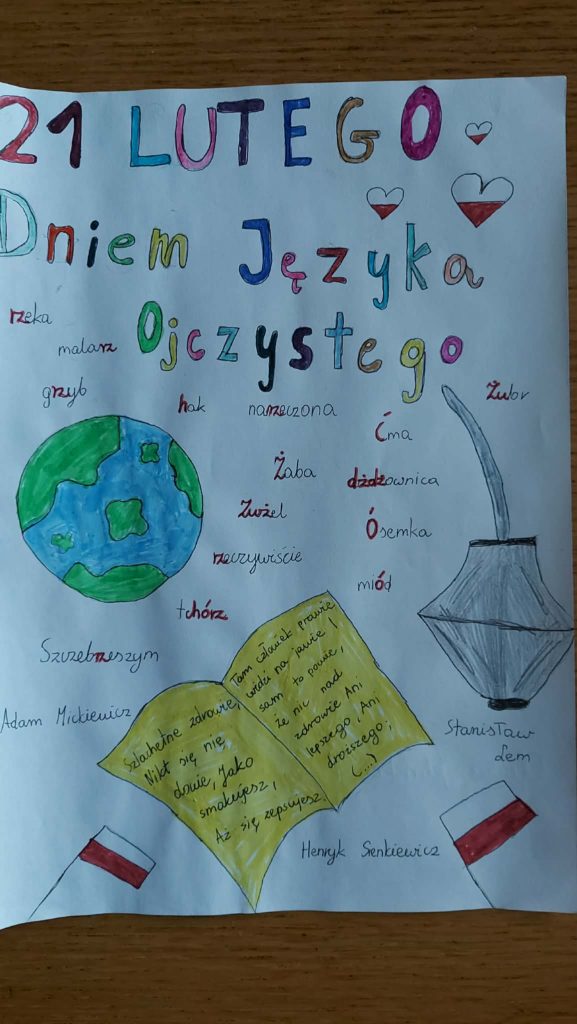 21 LUTEGO
Dniem Języka
Ojczystego
rzeka
malarz
grzyb
hak
narzeczona
Żubr
Ćma
Żaba
dżdżownica
Zwżel
Ósemka
rzeczywiście
miód
tchórz
Szczebrzeszym
Adam Mickiewicz
Szlachetne zdrowie,
Nikt się nie
dowie, Jako
smakujesz,
Aż się zepsujesz.
Tam człowiek prawie
widzi na jawie I
sam to powie,
Że nic nad
zdrowie Ani
lepszego, Ani
droższego;
(...)
Stanisław
Lem
Henryk Sienkiewicz